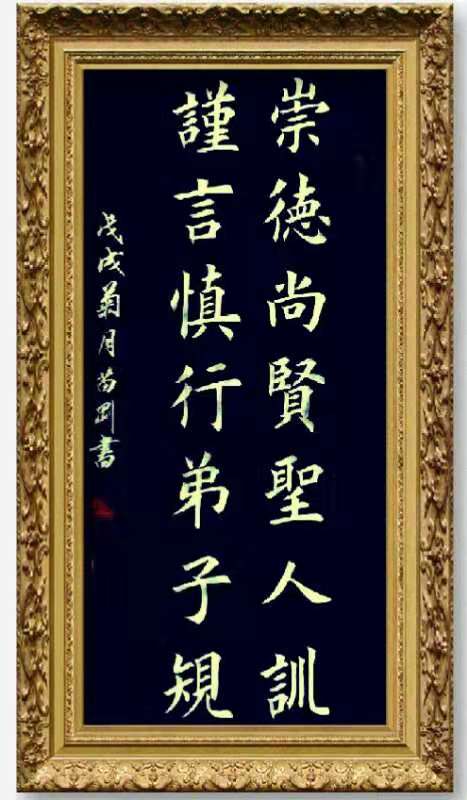 崇徳尚賢聖人訓
謹言慎行弟子規
戊戌菊月苗剛書